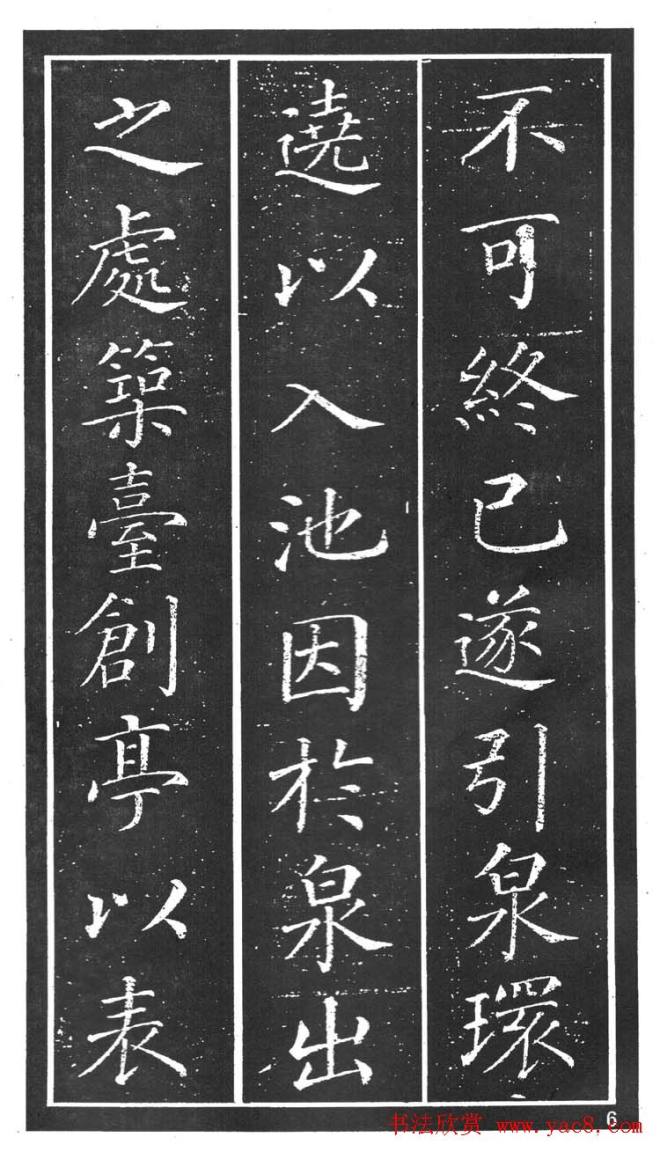 不可終已遂引泉環
遶以入池因於泉出
之處築臺創亭以表
6
书法欣赏 www.yac8.com